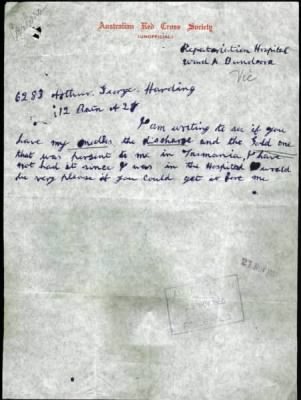 Australian Red Cross Society
(UNOFFICIAL)
Repatriation Hospital
Ward A Bundoora
Vic
6283 Arthur George Harding
12 Batn A
I am writing to see if you
have my medles the discharge and the Gold one
that was persent to me in Tasmania, I have
not had it since I was in the Hospital I would
be very please if you could get it fore me